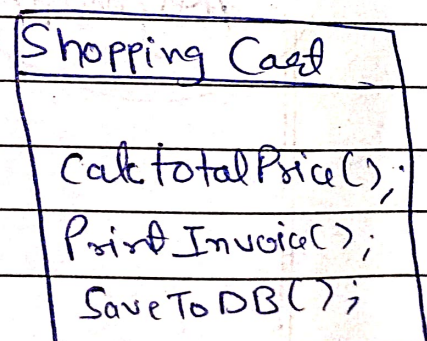 Shopping Cart
CalctotalPrice();
PrintInvoice();
SaveToDB();